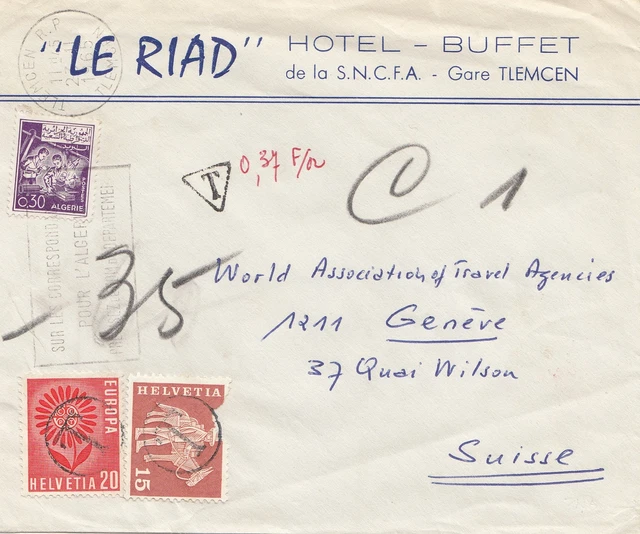 "LE RIAD" HOTEL - BUFFET
de la S.N.C.F.A. - Gare TLEMCEN
TLEMCEN R.P.
0.30 ALGERIE
T
0,37 F/or
C 1
SUR LES CORRESPOND
POUR L'ALGER
35
World Association of Travel Agencies
1211 Genève
37 Quai Wilson
Suisse
EUROPA
HELVETIA 20
T
HELVETIA
15
T